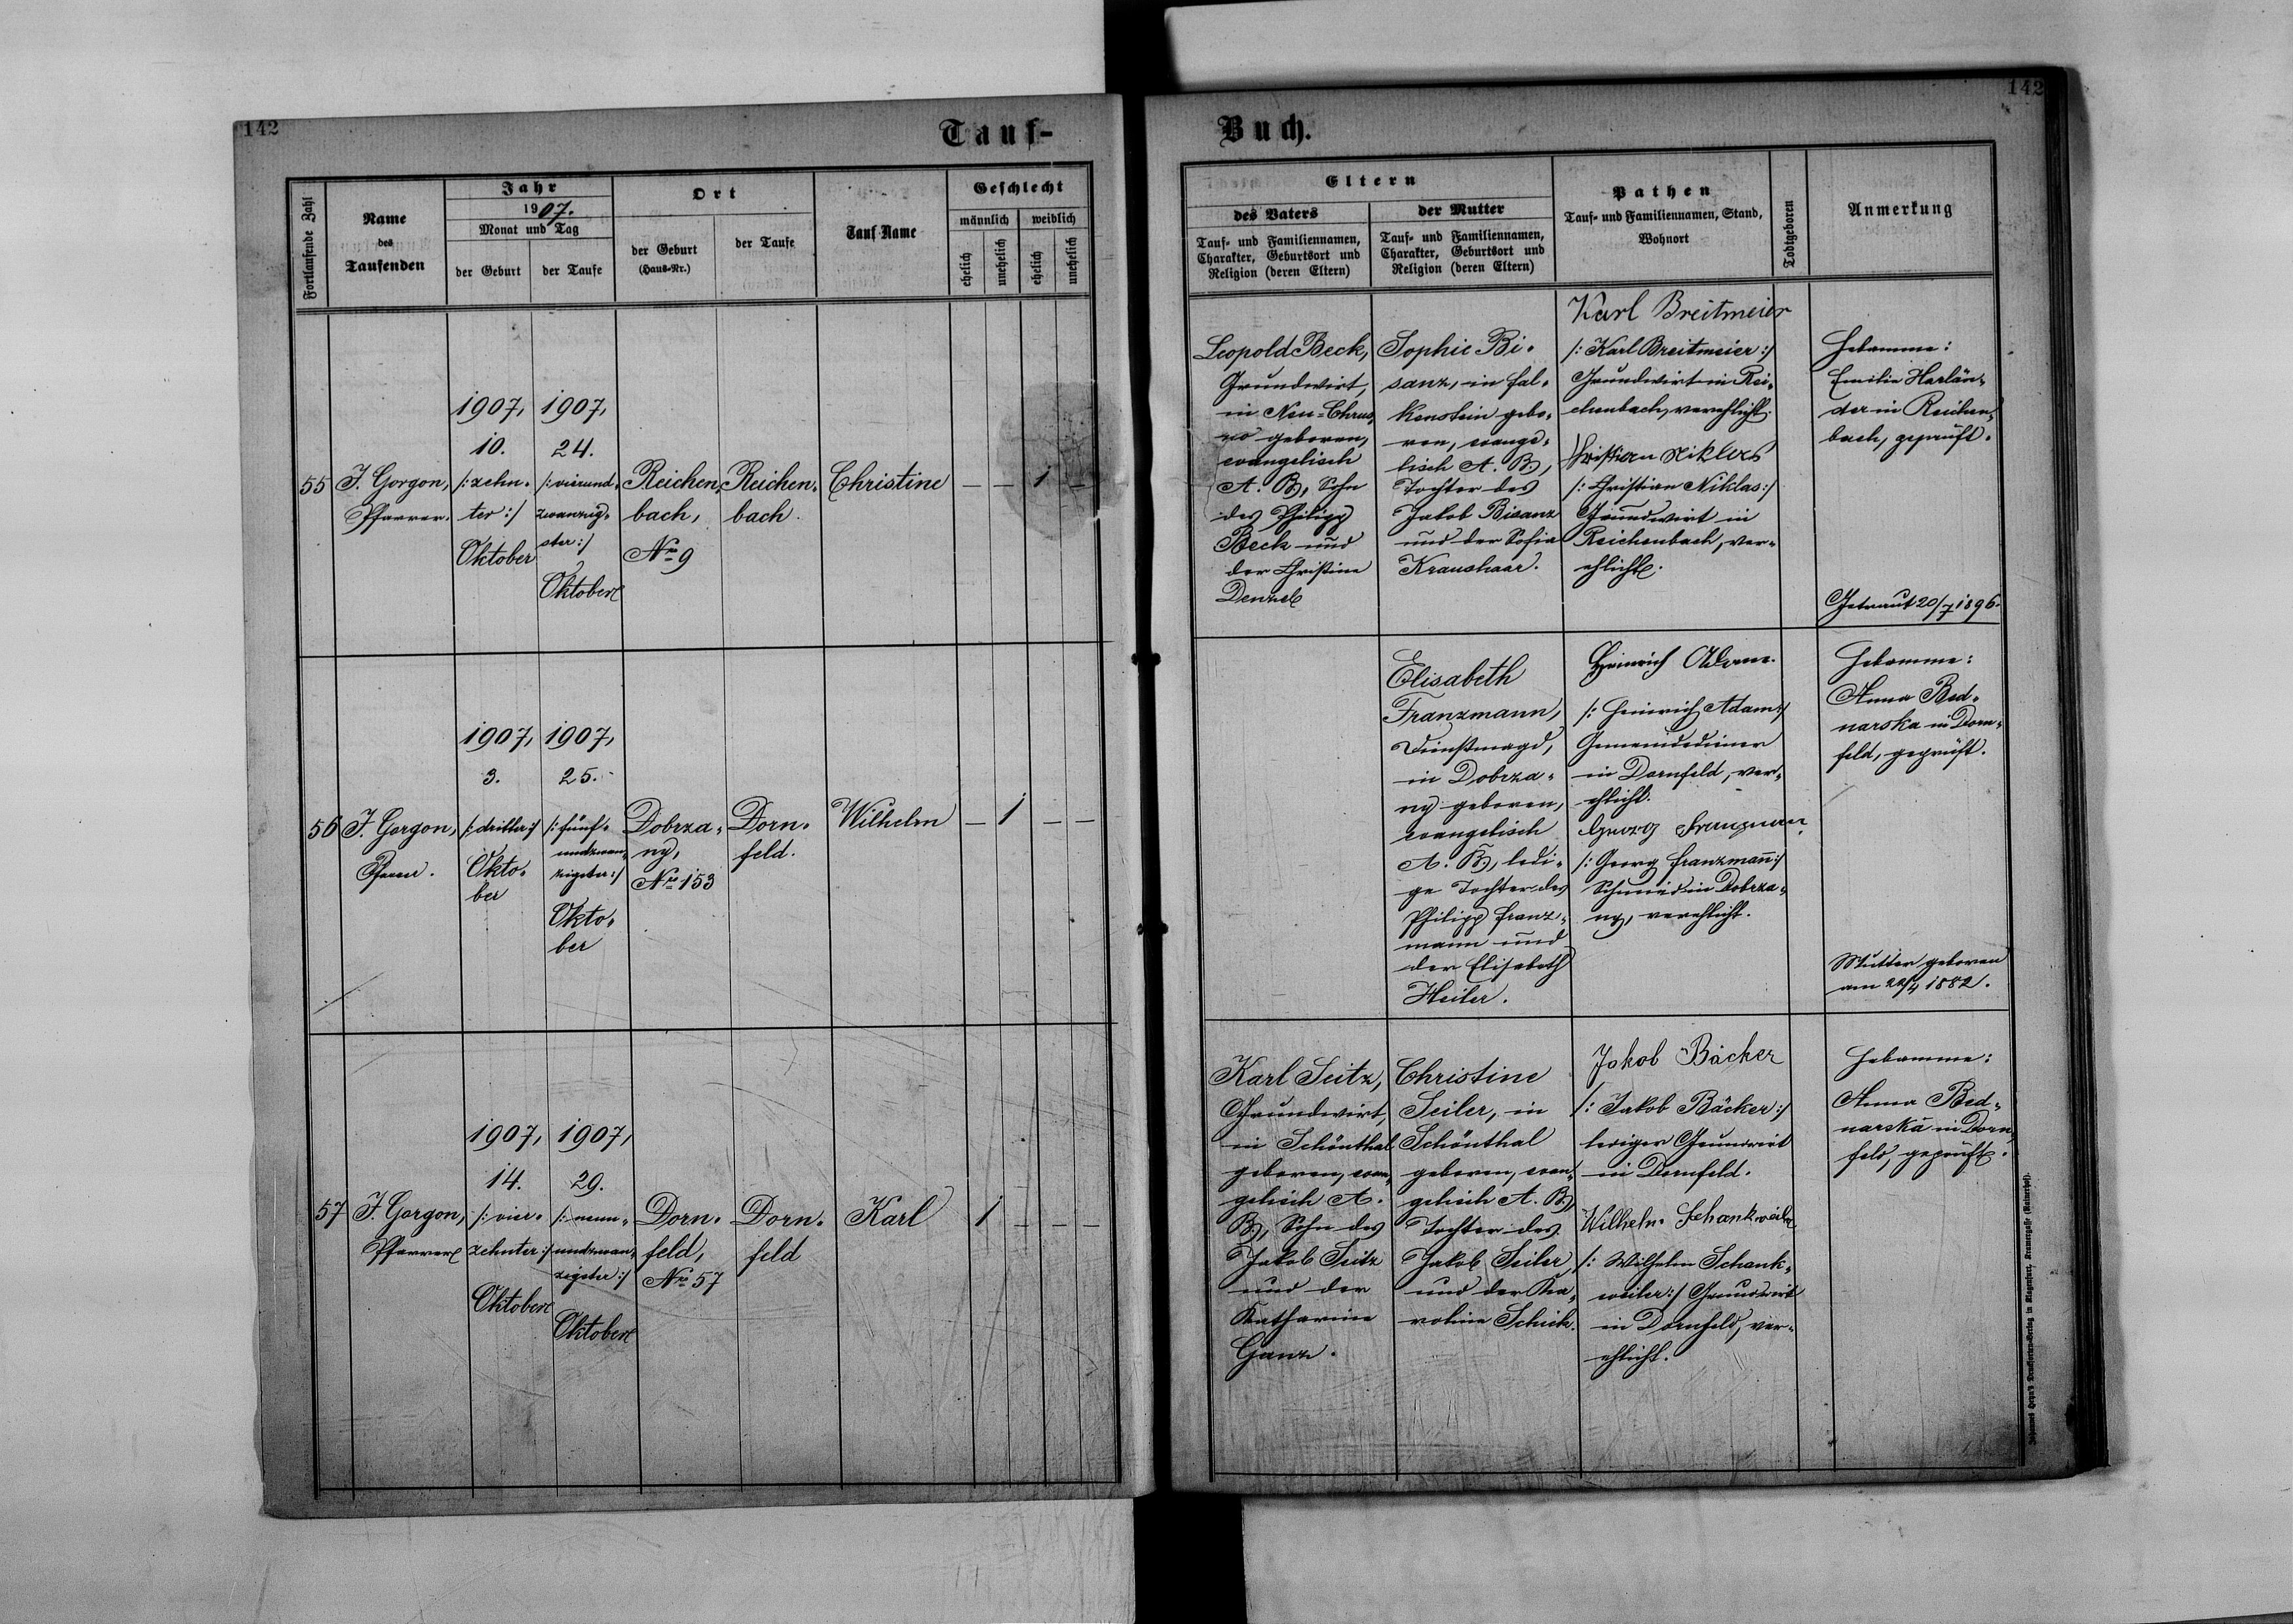 142
Tauf-
Fortlaufende Zahl
Name
des
Taufenden
Jahr
1907.
Monat und Tag
der Geburt
der Taufe
Ort
der Geburt
(Haus-Nr.)
der Taufe
Tauf-Name
Geschlecht
männlich
weiblich
ehelich
unehelich
ehelich
unehelich
55
J. Gorgon,
Pfarrer.
1907,
10.
/: zehn-
ter :/
Oktober
1907,
24.
/: vierund-
zwanzig-
ster :/
Oktober
Reichen-
bach,
Nro 9
Reichen-
bach.
Christine
— — 1 —
56
J. Gorgon,
Pfarrer.
1907,
3.
/: dritter :/
Okto-
ber
1907,
25.
/: fünf-
undzwan-
zigster :/
Okto-
ber
Dobrza-
ny,
Nro 153
Dorn-
feld.
Wilhelm
— 1 — —
57
J. Gorgon,
Pfarrer
1907,
14.
/: vier-
zehnter :/
Oktober
1907,
29.
/: neun-
undzwan-
zigster :/
Oktober
Dorn-
feld,
Nro 57
Dorn-
feld
Karl
1 — — —
142
Buch.
Eltern
des Vaters
Tauf- und Familiennamen,
Charakter, Geburtsort und
Religion (deren Eltern)
der Mutter
Tauf- und Familiennamen,
Charakter, Geburtsort und
Religion (deren Eltern)
Pathen
Tauf- und Familiennamen, Stand,
Wohnort
Todtgeboren
Anmerkung
Leopold Beck,
Grundwirt,
in Neu-Chrus-
no geboren,
evangelisch
A. B., Sohn
des Philipp
Beck und
der Christine
Denzel
Sophie Bi-
sanz, in Fal-
kenstein gebo-
ren, evange-
lisch A. B.,
Tochter des
Jakob Bisanz
und der Sofia
Kraushaar.
Karl Breitmeier
/: Karl Breitmeier :/
Grundwirt in Rei-
chenbach, verehlicht.
Christian Niklas
/: Christian Niklas :/
Grundwirt in
Reichenbach, ver-
ehlicht.
Hebamme:
Emilie Harlän-
der in Reichen-
bach, geprüft.
Getraut 20/7 1896.
Elisabeth
Franzmann,
Dienstmagd,
in Dobrza-
ny geboren,
evangelisch
A. B., ledi-
ge Tochter des
Philipp Franz-
mann und
der Elisabeth
Heiler.
Heinrich Adam.
/: Heinrich Adam :/
Gemeindediener
in Dornfeld, ver-
ehlicht.
Georg Franzman
/: Georg Franzmann :/
Schmied in Dobrza-
ny, verehlicht.
Hebamme:
Anna Bed-
narska in Dorn-
feld, geprüft.
Mutter geboren
am 22/4 1882.
Karl Seitz,
Grundwirt,
in Schönthal
geboren, evan-
gelisch A.
B., Sohn des
Jakob Seitz
und der
Katharine
Ganz.
Christine
Seiler, in
Schönthal
geboren, evan-
gelisch A. B.,
Tochter des
Jakob Seiler
und der Ka-
roline Schick.
Jakob Bäcker
/: Jakob Bäcker :/
lediger Grundwirt
in Dornfeld.
Wilhelm Schankweiler
/: Wilhelm Schank-
weiler :/ Grundwirt
in Dornfeld, ver-
ehlicht.
Hebamme:
Anna Bed-
narska in Dorn-
feld, geprüft.